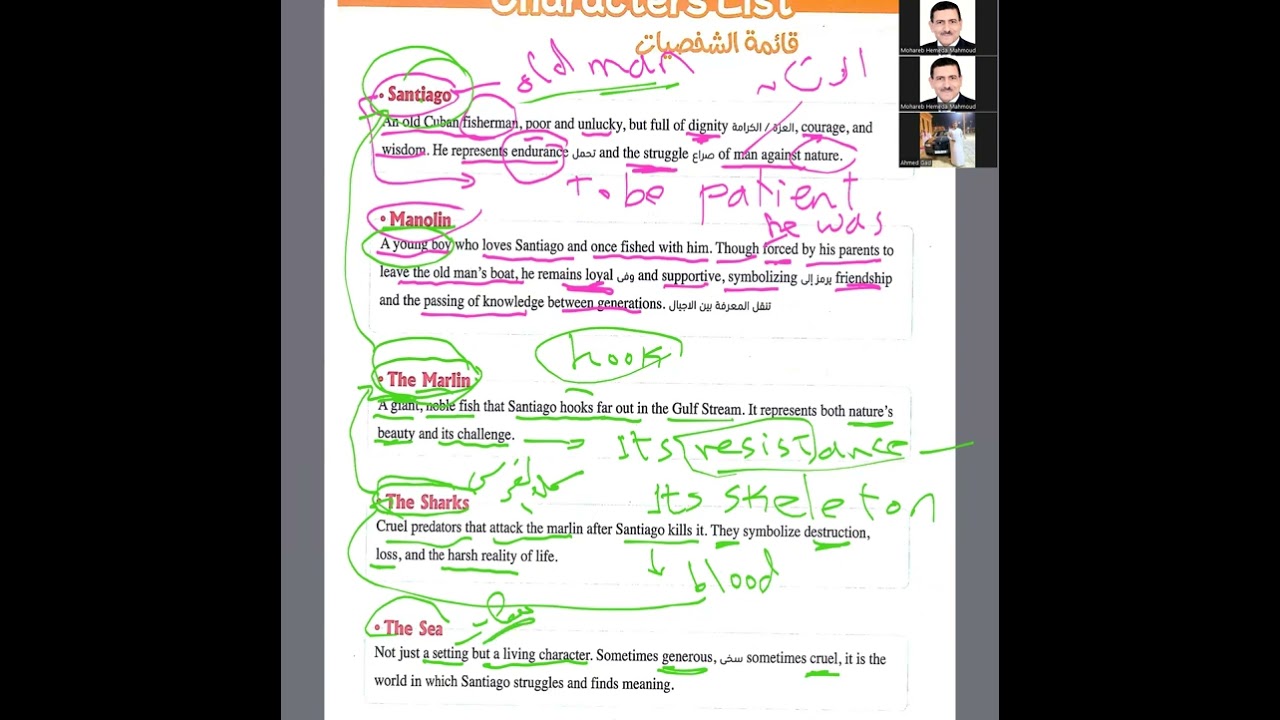 Characters List
قائمة الشخصيات
Mohareb Hemida Mahmoud
Mohareb Hemida Mahmoud
Ahmed Gad
old man
• Santiago
An old Cuban fisherman, poor and unlucky, but full of dignity العزة / الكرامة, courage, and
wisdom. He represents endurance تحمل and the struggle صراع of man against nature.
To be patient
he was
• Manolin
A young boy who loves Santiago and once fished with him. Though forced by his parents to
leave the old man's boat, he remains loyal وفى and supportive, symbolizing يرمز إلى friendship
and the passing of knowledge between generations. تنقل المعرفة بين الاجيال
hook
• The Marlin
A giant, noble fish that Santiago hooks far out in the Gulf Stream. It represents both nature's
beauty and its challenge.
Its resistance
Its skeleton
• The Sharks
Cruel predators that attack the marlin after Santiago kills it. They symbolize destruction,
loss, and the harsh reality of life.
blood
• The Sea
Not just a setting but a living character. Sometimes generous, سخى sometimes cruel, it is the
world in which Santiago struggles and finds meaning.